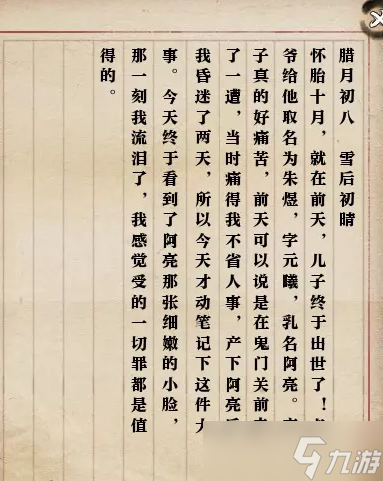 腊月初八　雪后初晴
怀胎十月，就在前天，儿子终于出世了！
爷给他取名为朱煜，字元曦，乳名阿亮。
子真的好痛苦，前天可以说是在鬼门关前
了一遭，当时痛得我不省人事，产下阿亮
我昏迷了两天，所以今天才动笔记下这件
事。今天终于看到了阿亮那张细嫩的小脸，
那一刻我流泪了，我感觉受的一切罪都是值
得的。
九游